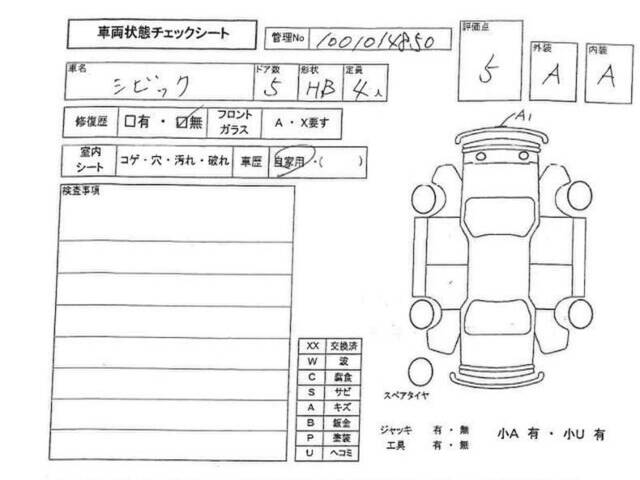 車両状態チェックシート
管理No 1001014850
評価点 5
外装 A
内装 A
車名 シビック
ドア数 5
形状 HB
定員 4人
修復歴 □有・☑無
フロントガラス A・X要す
室内シート コゲ・穴・汚れ・破れ
車歴 自家用・( )
検査事項
A1
XX 交換済
W 波
C 腐食
S サビ
A キズ
B 鈑金
P 塗装
U ヘコミ
スペアタイヤ
ジャッキ 有・無
工具 有・無
小A 有・小U 有